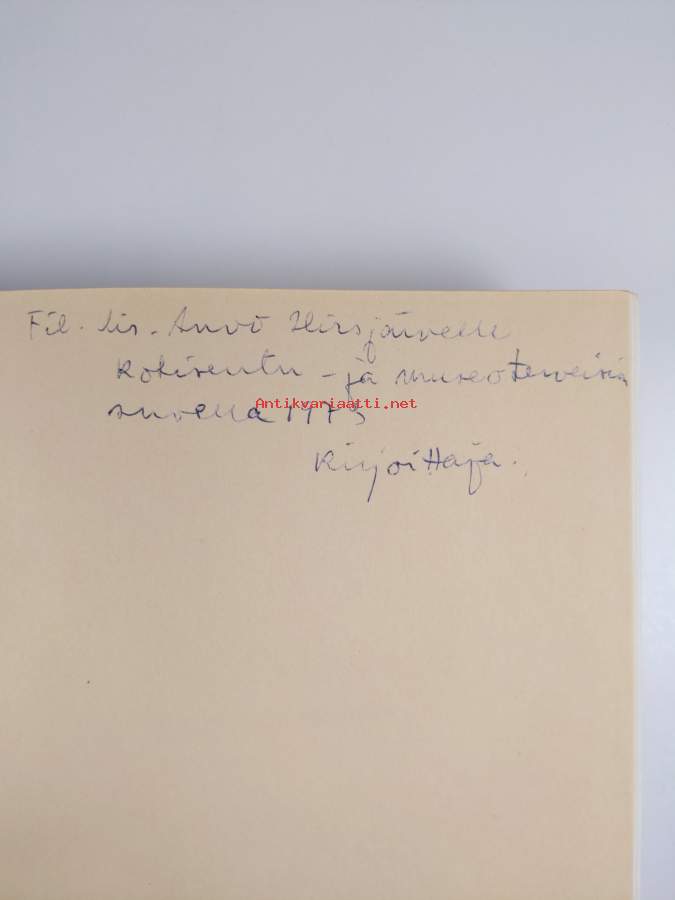 Fil. lis. Arvo Hirsjärvelle
kotiseutu - ja museoterveisin
Antikvariaatti.net
suvella 1973
Kirjoittaja.